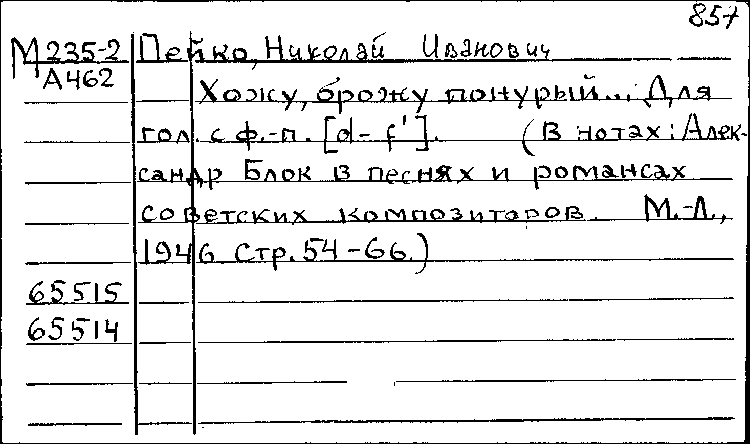 857
М 235-2 Пейко, Николай Иванович
А462
Хожу, брожу понурый... Для
гол. с ф.-п. [d-f']. (В нотах: Алек-
сандр Блок в песнях и романсах
советских композиторов. М.-Л.,
1946. Стр. 54-66.)
65515
65514